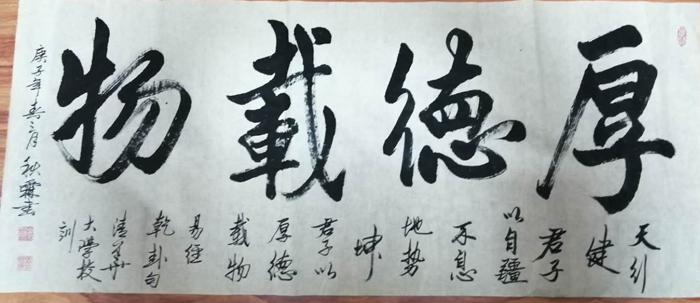 厚德載物
天行
健
君子
以自疆
不息
地势
坤
君子以
厚德
載物
易经
乾卦句
清华
大學校
训
庚子年春月秋霖書